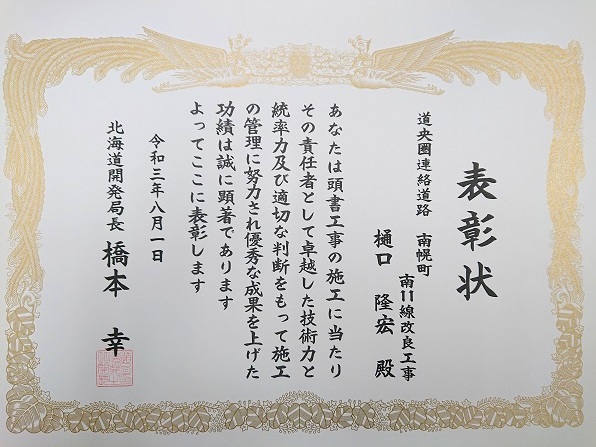 表彰状
道央圏連絡道路 南幌町
南11線改良工事
樋口 隆宏 殿
あなたは頭書工事の施工に当たり
その責任者として卓越した技術力と
統率力及び適切な判断をもって施工
の管理に努力され優秀な成果を上げた
功績は誠に顕著であります
よってここに表彰します
令和三年八月一日
北海道開発局長 橋本 幸